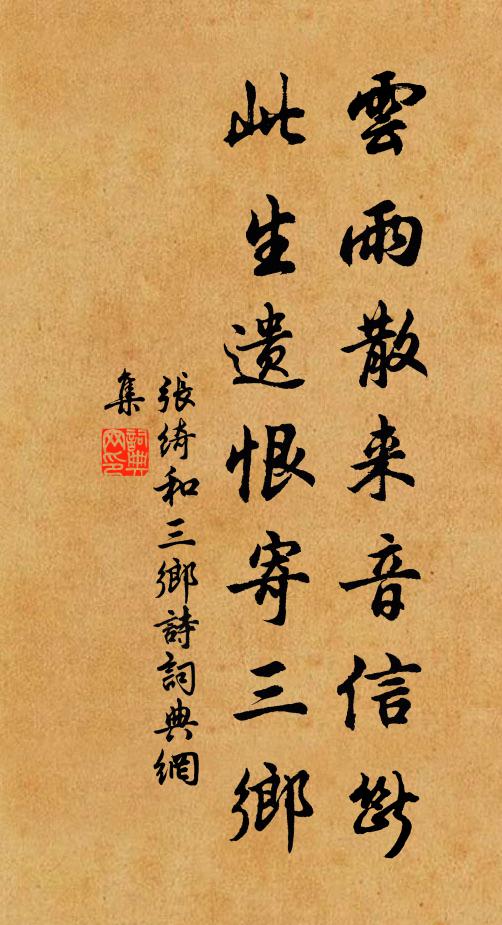 雲雨散来音信斷
此生遗恨寄三鄉
張綺和三鄉詩詞典網
集
詞典網印